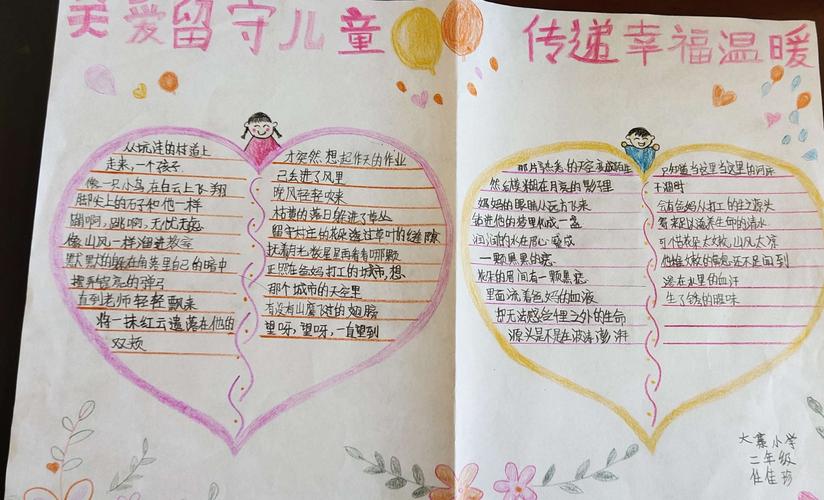 关爱留守儿童
传递幸福温暖
从坑洼的村道上
走来,一个孩子
像一只小鸟在白云上飞翔
脚尖上的石子和他一样
蹦啊,跳啊,无忧无虑
像山风一样溜进教室
默默的躲在角落里自己的暗中
弹弓
直到老师轻轻飘来
将一抹红云遗落在他的
双颊
才突然想起昨天的作业
已丢进了风里
晚风轻轻吹来
枯黄的落日躲进了草丛
留守村庄的 透过草叶的缝隙
扶着月光数星星看看哪颗
正照在爸妈打工的城市,想
那个城市的天空里
有没有山鹰飞过的翅膀
望呀,望呀,一直望到
那片熟悉的天空变成陌生
然后模糊在月亮的影子里
妈妈的眼睛从远方飞来
钻进他的梦里化成一盏
润润的水在眉心 成
一颗黑黑的痣
发生的眉间有一颗黑痣
里面流着爸妈的血液
却无法感受 之外的生命
源头是不是在波涛澎湃
只知道当这里当这里的河床
干涸时
会有爸妈从打工的 源头
寄来足以滋养生命的清水
可 太嫩,山风大凉
他稚嫩的 还不足闻到
渗在水里的血汗
生了锈的腥味
大寨小学
二年级
任佳